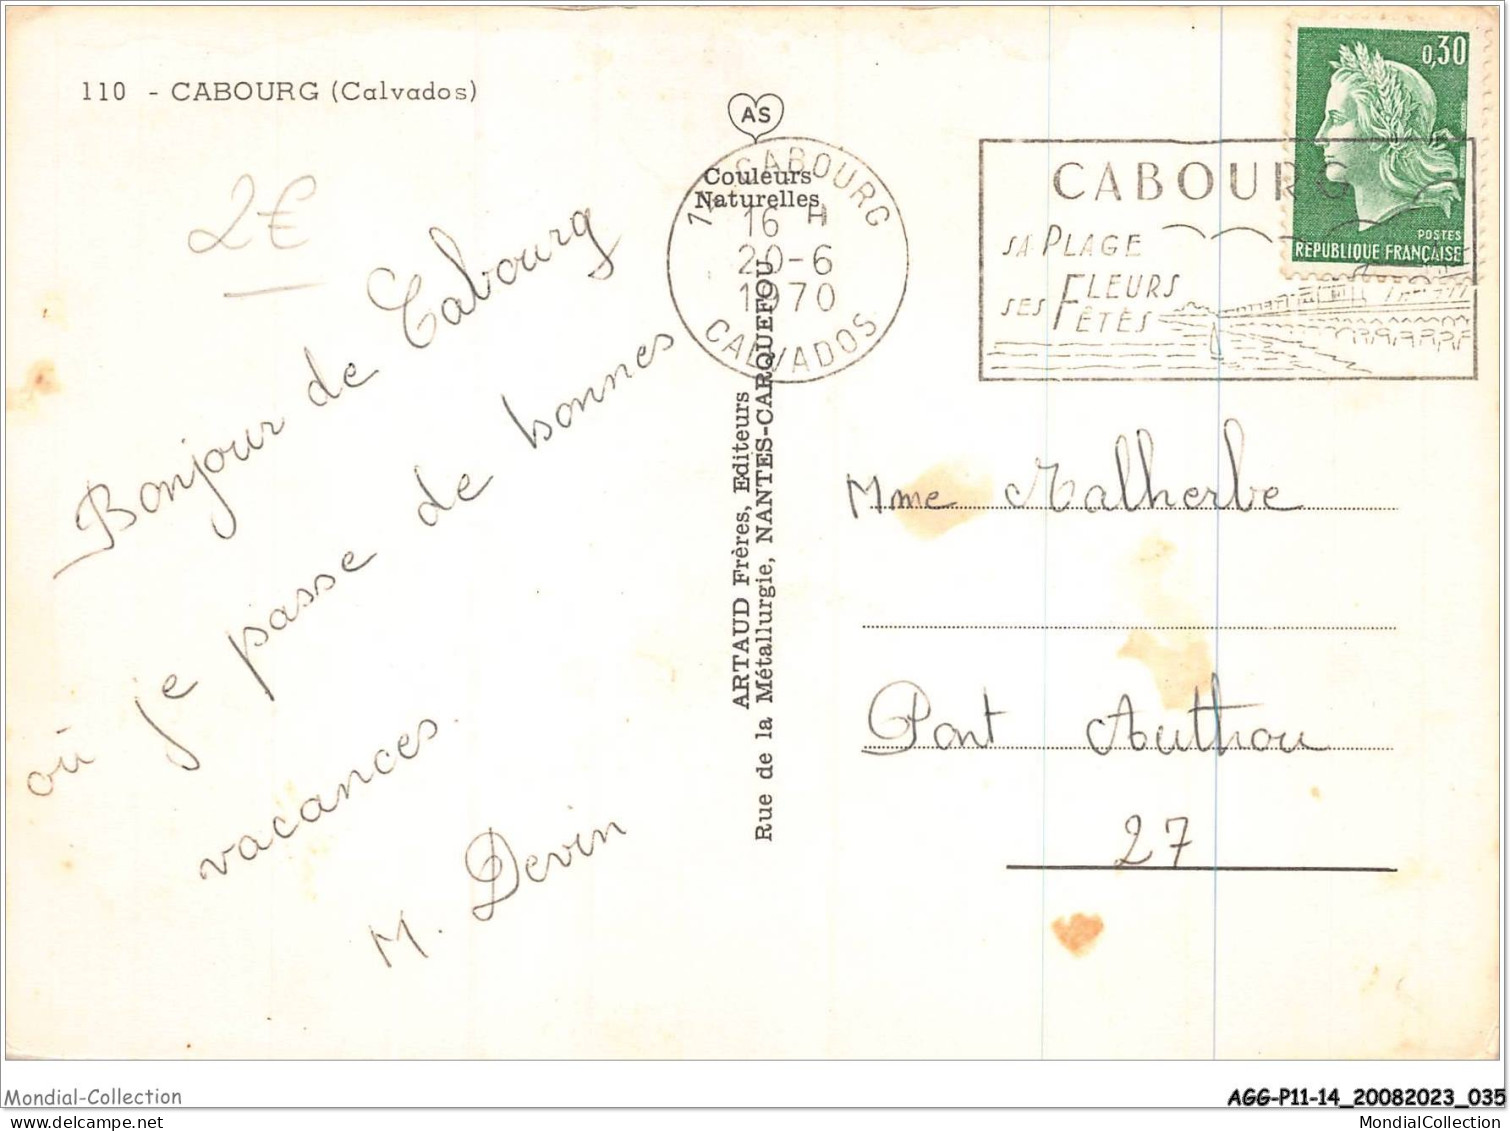 110 - CABOURG (Calvados)
2€
Bonjour de Cabourg
où je passe de bonnes
vacances.
M. Devin
AS
Couleurs
Naturelles
ARTAUD Frères, Editeurs
Rue de la Métallurgie, NANTES-CARQUEFOU
CABOURG
16 H
20-6
1970
CALVADOS
CABOURG
SA PLAGE
SES FLEURS
FÊTES
0,30
POSTES
REPUBLIQUE FRANÇAISE
Mme Malherbe
Pont Authou
27
Mondial-Collection
AGG-P11-14_20082023_035
MondialCollection